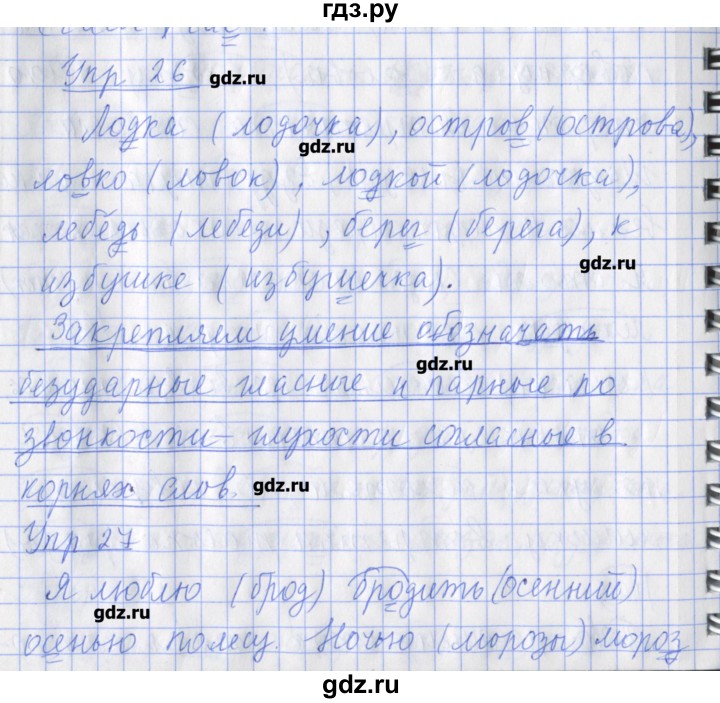 гдз.ру
Упр 26 gdz.ru
Лодка (лодочка), остров (острова),
gdz.ru
ловко (ловок), лодкой (лодочка),
лебедь (лебеди), берег (берега), к
gdz.ru
избушке (избушечка).
Закрепляем умение обозначать
gdz.ru
безударные гласные и парные по
звонкости-глухости согласные в
корнях слов. gdz.ru
Упр 27
Я люблю (брод) бродить (осенний)
gdz.ru
осенью полесу. Ночью (морозы) мороз
gdz.ru